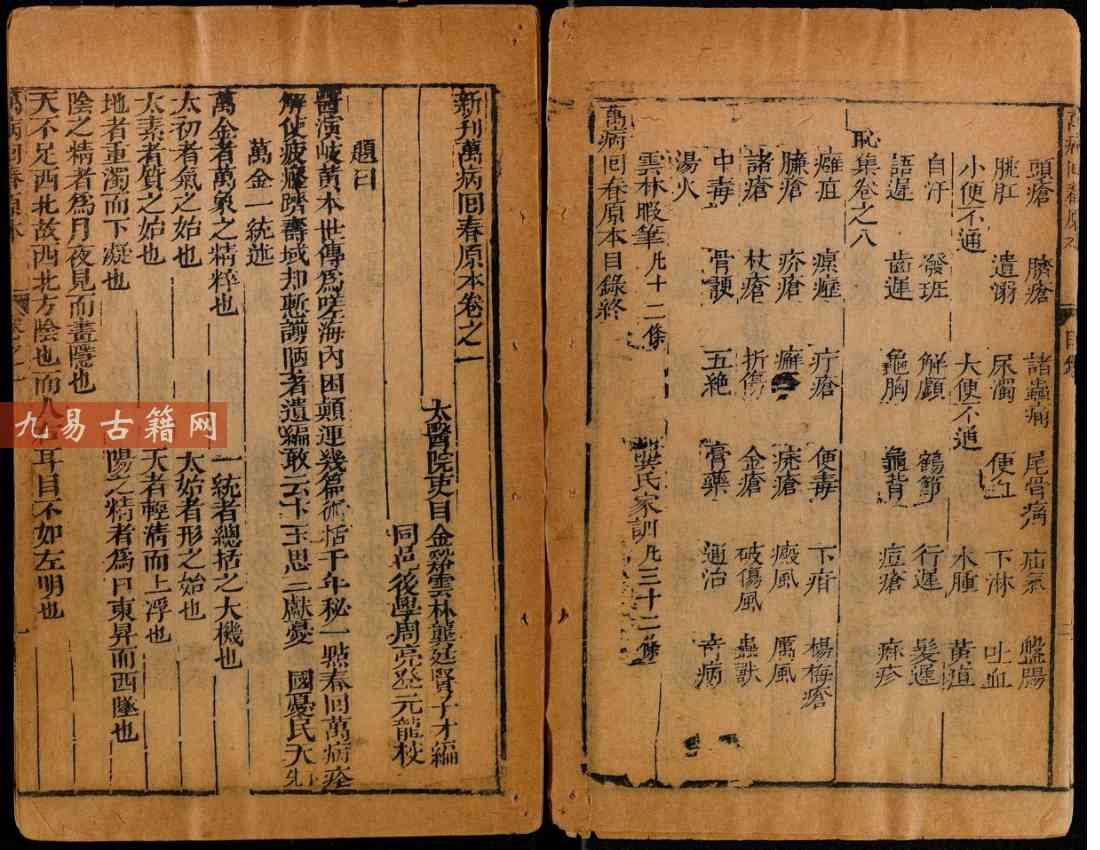 頭瘡 臍瘡 諸蟲痛 尾骨痛 疝氣 盤腸
脫肛 遺溺 尿濁 便血 下淋 吐血
小便不通 大便不通 水腫 黃疸
自汗 發班 解顱 鶴節 行遲 髮遲
語遲 齒遲 龜胸 龜背 痘瘡 麻疹
恥集卷之八
癰疽 瘰癧 疔瘡 便毒 下疳 楊梅瘡
臁瘡 疥瘡 癬瘡 疣瘡 癜風 厲風
諸瘡 杖瘡 折傷 金瘡 破傷風 蟲獸
中毒 骨鯁 五絕 膏藥 通治 奇病
湯火
雲林暇筆凡十二條 龔氏家訓凡三十二條
萬病囘春原本目錄終
新刊萬病囘春原本卷之一
太醫院吏目金谿雲林龔廷賢子才編
同邑後學周亮登元龍校
題曰
醫演岐黃本世傳為嗟海內困顛連幾篇術括千年秘一點春囘萬病痊
解使疲癃躋壽域却慙謭陋者遺編敢云卞玉思三獻憂 國憂民天
萬金一統述
萬金者萬象之精粹也 一統者總括之大機也
太初者氣之始也 太始者形之始也
太素者質之始也 天者輕清而上浮也
地者重濁而下凝也 陽之精者為日東昇而西墜也
陰之精者為月夜見而晝隱也
天不足西北故西北方陰也而人 耳目不如左明也
萬病囘春原本 卷之一
九易古籍网